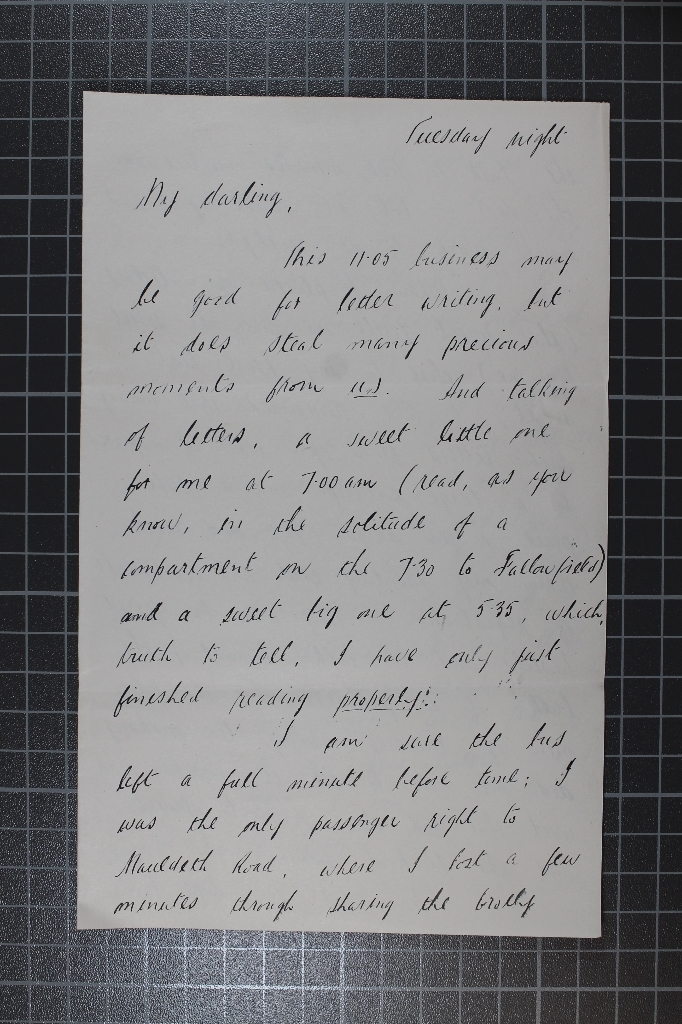 Tuesday night
My darling,
This 11.05 business may
be good for letter writing, but
it does steal many precious
moments from us. And talking
of letters, a sweet little one
for me at 7.00 am (read, as you
know, in the solitude of a
compartment on the 7.30 to Fallowfield)
and a sweet big one at 5.35, which,
truth to tell, I have only just
finished reading properly!
I am sure the bus
left a full minute before time; I
was the only passenger right to
Mauldeth Road, where I lost a few
minutes through sharing the